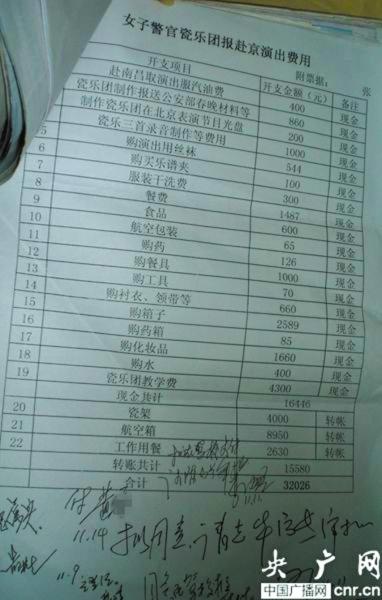 女子警官瓷乐团报赴京演出费用
附票据： 张
开支项目 开支金额（元） 备注
赴南昌取演出服汽油费 400 现金
瓷乐团制作报送公安部春晚材料等 860 现金
制作瓷乐团在北京表演节目光盘 200 现金
瓷乐三首录音制作等费用 1000 现金
5 购演出用丝袜 544 现金
6 购买乐谱夹 100 现金
7 服装干洗费 300 现金
8 餐费 1487 现金
9 食品 600 现金
10 航空包装 65 现金
11 购药 126 现金
12 购餐具 1000 现金
13 购工具 70 现金
14 购衬衣、领带等 660 现金
15 购箱子 2589 现金
16 购药箱 85 现金
17 购化妆品 1660 现金
18 购水 400 现金
瓷乐团教学费 4300 现金
现金共计 16446
20 瓷架 4000 转帐
21 航空箱 8950 转帐
22 工作用餐 2630 转帐
转账共计 15580
合计 32026
11.11
11.14
11.9
央广网
中国广播网 cnr.cn